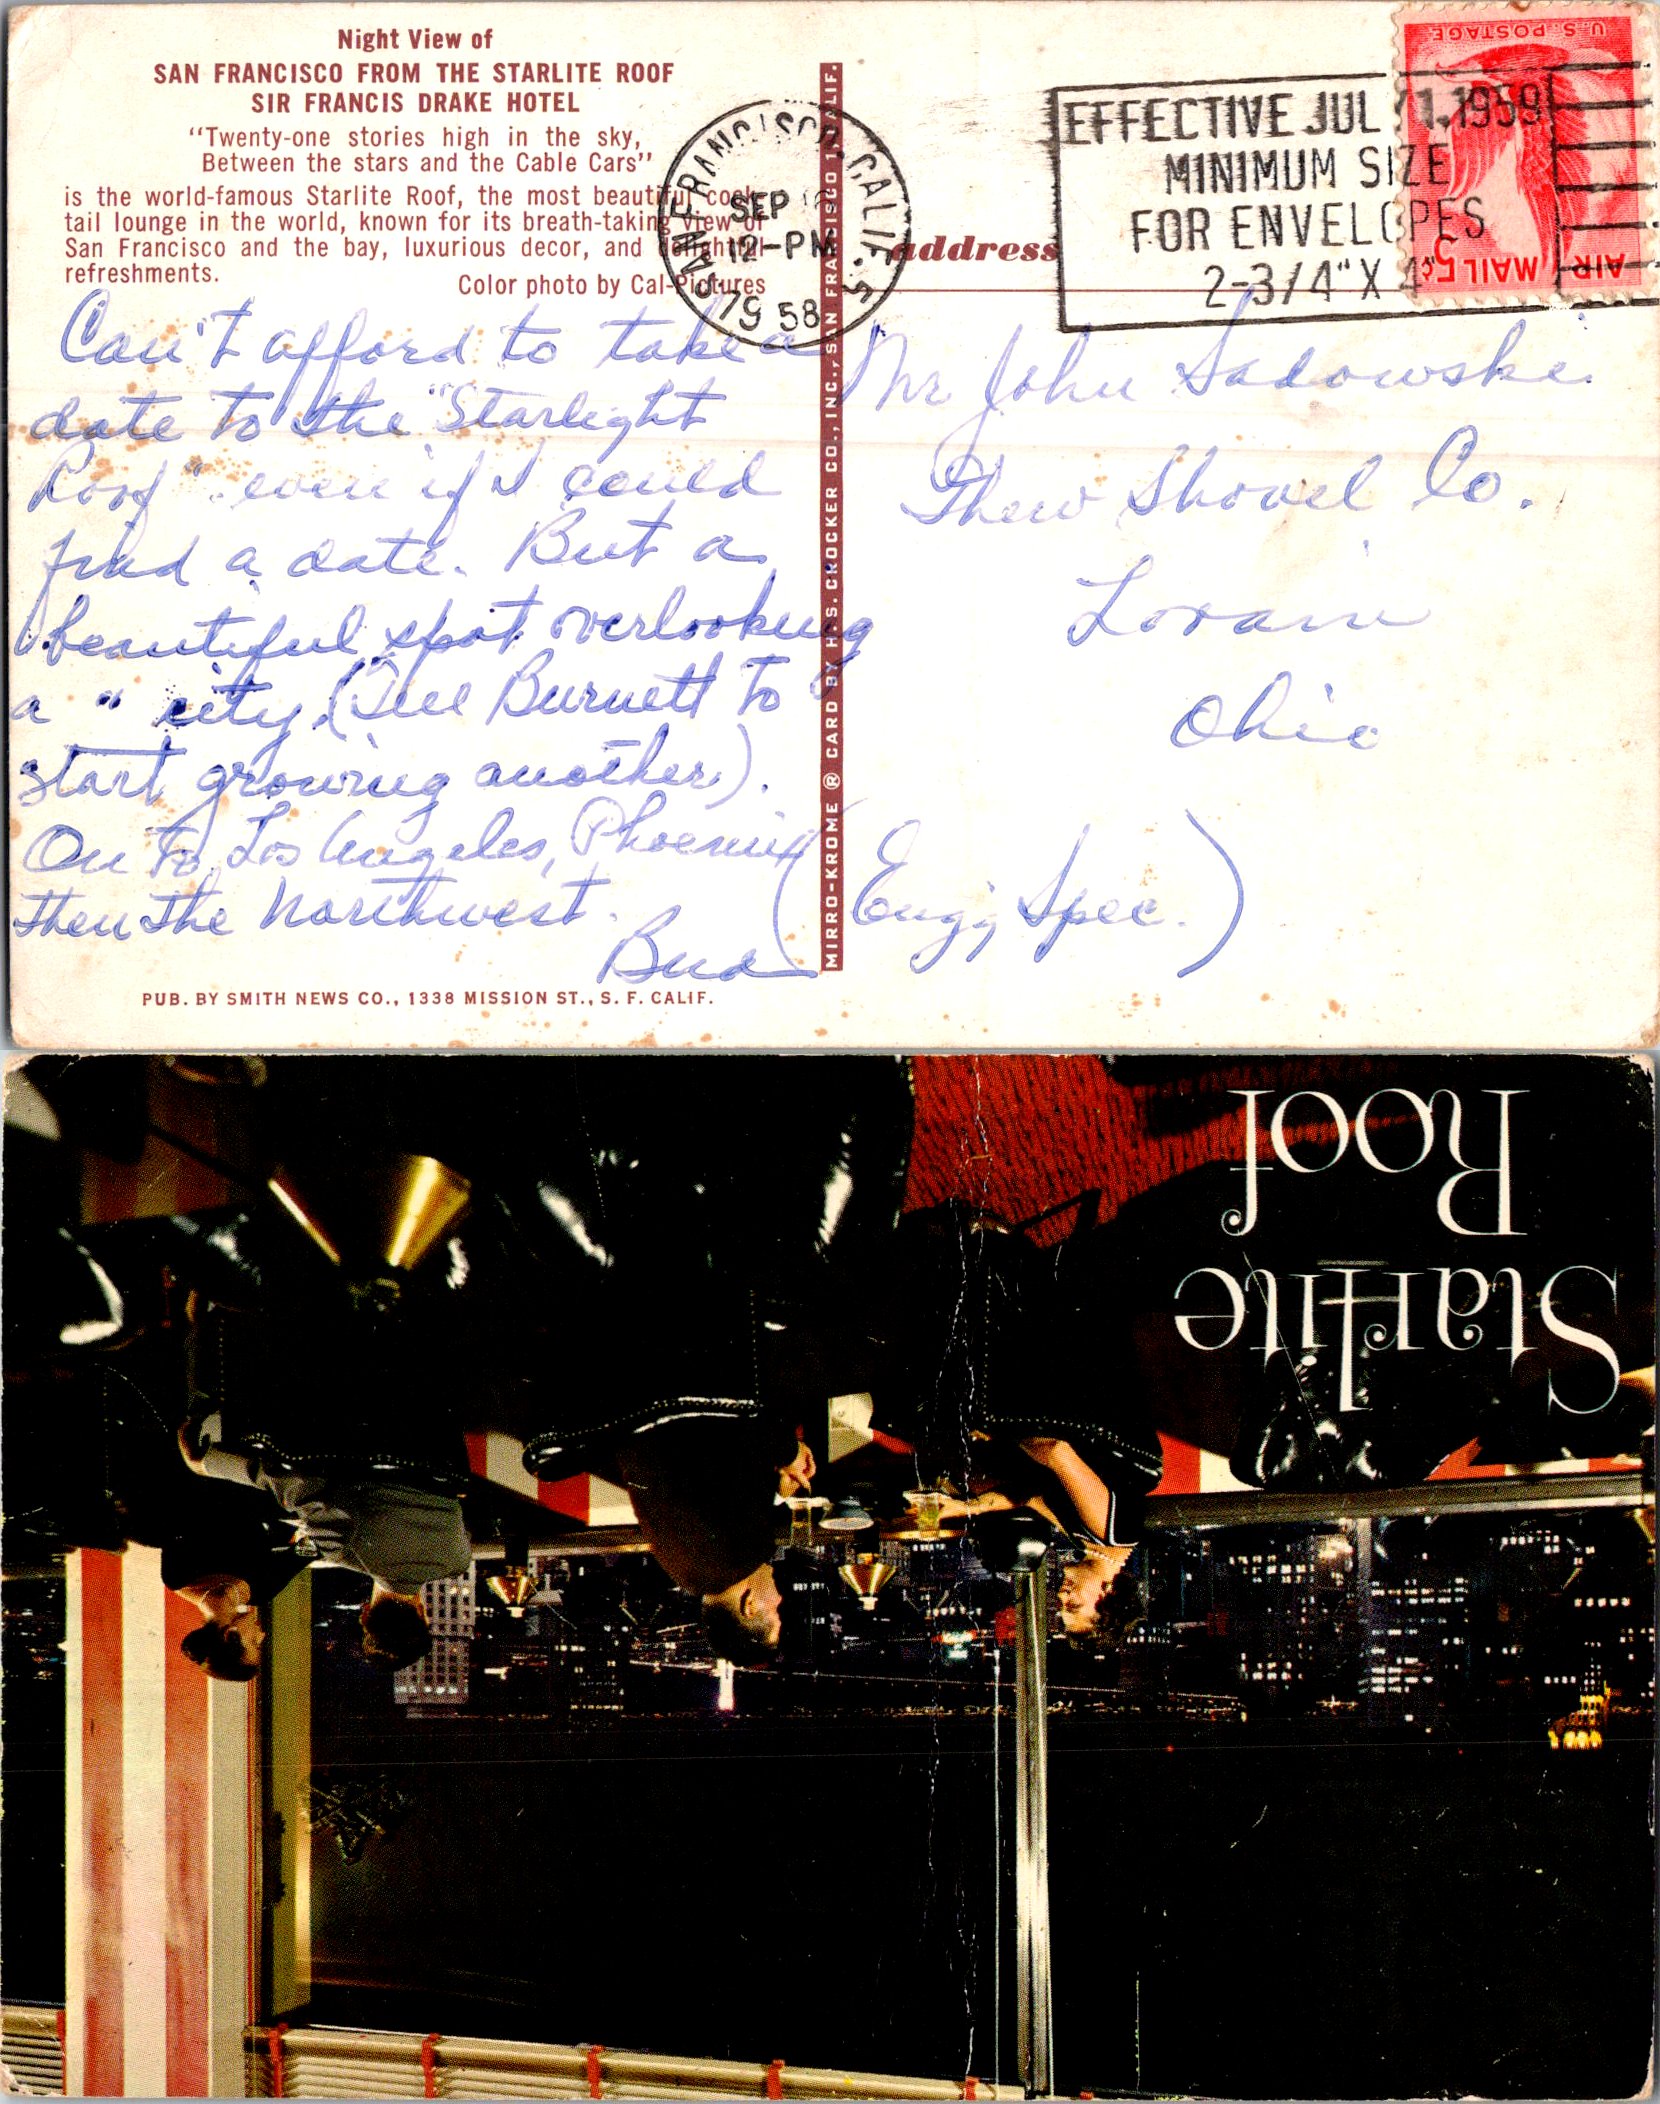 Night View of
SAN FRANCISCO FROM THE STARLITE ROOF
SIR FRANCIS DRAKE HOTEL
"Twenty-one stories high in the sky,
Between the stars and the Cable Cars"
is the world-famous Starlite Roof, the most beautiful cock-
tail lounge in the world, known for its breath-taking view of
San Francisco and the bay, luxurious decor, and delightful
refreshments.
Color photo by Cal-Pictures
Can't afford to take a
date to the "Starlight
Roof" even if I could
find a date. But a
beautiful spot overlooking
a " city. (Tell Burnett to
start growing another).
On to Los Angeles, Phoenix
then the Northwest.
Bud
PUB. BY SMITH NEWS CO., 1338 MISSION ST., S. F. CALIF.
MIRRO-KROME ® CARD BY H.S. CROCKER CO., INC., SAN FRANCISCO 1, CALIF.
SAN FRANCISCO, CALIF. 5
SEP
12-PM
1958
EFFECTIVE JUL 1, 1959
MINIMUM SIZE
FOR ENVELOPES
2-3/4" X 4"
U.S. POSTAGE
AIR MAIL 5¢
address
Mr John Sadowski
Thew Shovel Co.
Lorain
Ohio
(Eng'g Spec.)
Starlite
Roof